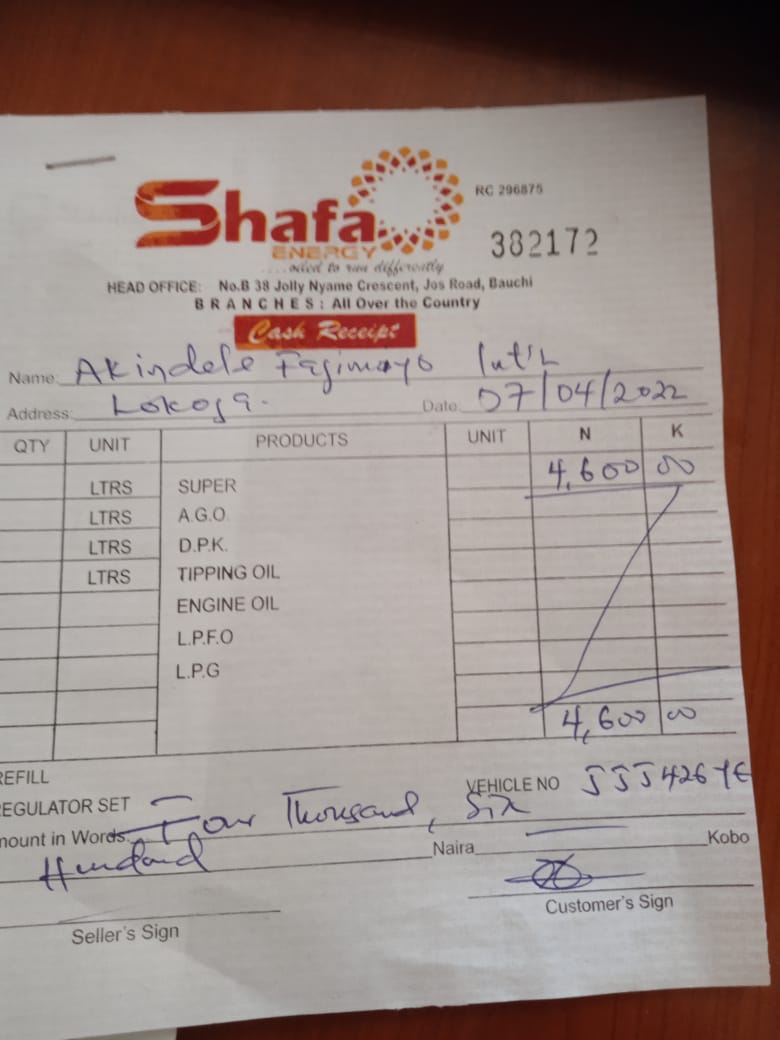 Shafa
RC 296875
ENERGY
382172
....oiled to run differently
HEAD OFFICE: No.B 38 Jolly Nyame Crescent, Jos Road, Bauchi
BRANCHES: All Over the Country
Cash Receipt
Name: Akindele Fajimayo Int'L
Address: Lokoja. Date: 07/04/2022
QTY UNIT PRODUCTS UNIT N K
LTRS SUPER 4,600 00
LTRS A.G.O.
LTRS D.P.K.
LTRS TIPPING OIL
ENGINE OIL
L.P.F.O
L.P.G
4,600 00
REFILL
REGULATOR SET VEHICLE NO JJJ426YE
mount in Words: Four Thousand, Six
Hundard Naira Kobo
Seller's Sign Customer's Sign